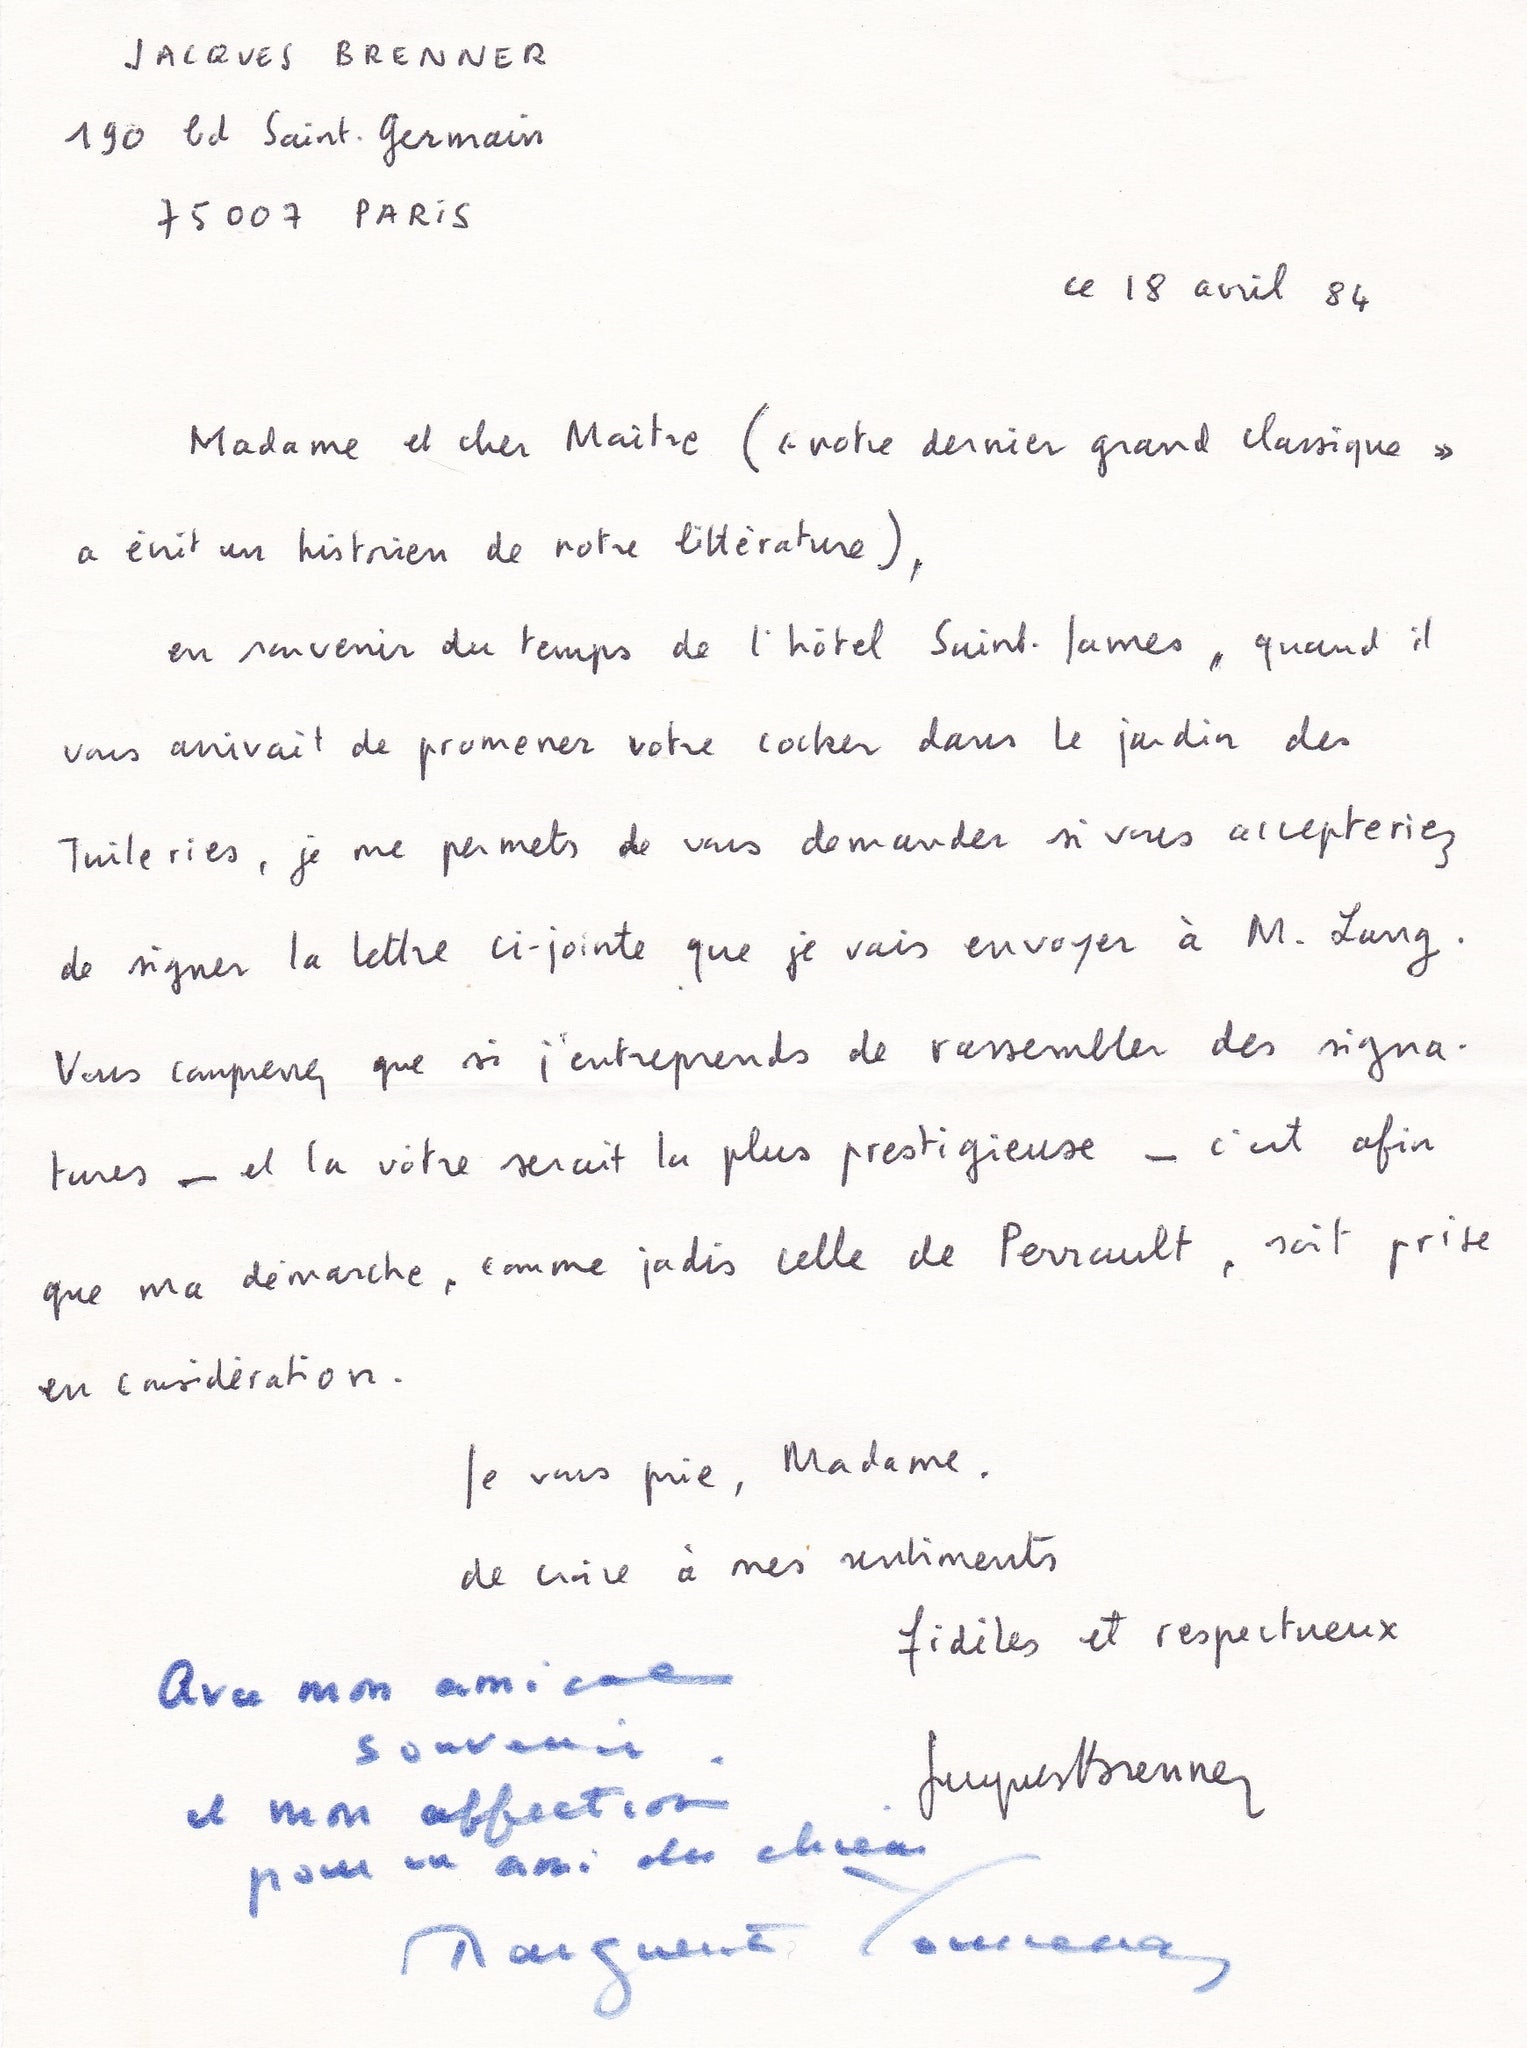 JACQUES BRENNER
190 bd Saint-Germain
75007 PARIS
ce 18 avril 84
Madame et cher Maître (« notre dernier grand classique »
a écrit un historien de notre littérature),
en souvenir du temps de l'hôtel Saint-James, quand il
vous arrivait de promener votre cocker dans le jardin des
Tuileries, je me permets de vous demander si vous accepteriez
de signer la lettre ci-jointe que je vais envoyer à M. Lang.
Vous comprenez que si j'entreprends de rassembler des signa-
tures — et la vôtre serait la plus prestigieuse — c'est afin
que ma démarche, comme jadis celle de Perrault, soit prise
en considération.
Je vous prie, Madame,
de croire à mes sentiments
fidèles et respectueux
Jacques Brenner
Avec mon amical
souvenir.
et mon affection
pour un ami du chien
Marguerite Yourcenar